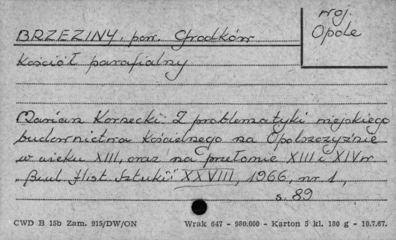 BRZEZINY, pow. Grodków
woj.
Opole
Kościół parafialny
Marian Kornecki: Z problematyki miejskiego
budownictwa kościelnego na Opolszczyźnie
w wieku XIII, oraz na przełomie XIII i XIV w.
"Biul. Hist. Sztuki" XXVIII, 1966, nr. 1,
s. 89
CWD B 15b Zam. 915/DW/ON Wrak 647 - 980.000 - Karton 5 kl. 180 g - 10.7.67.